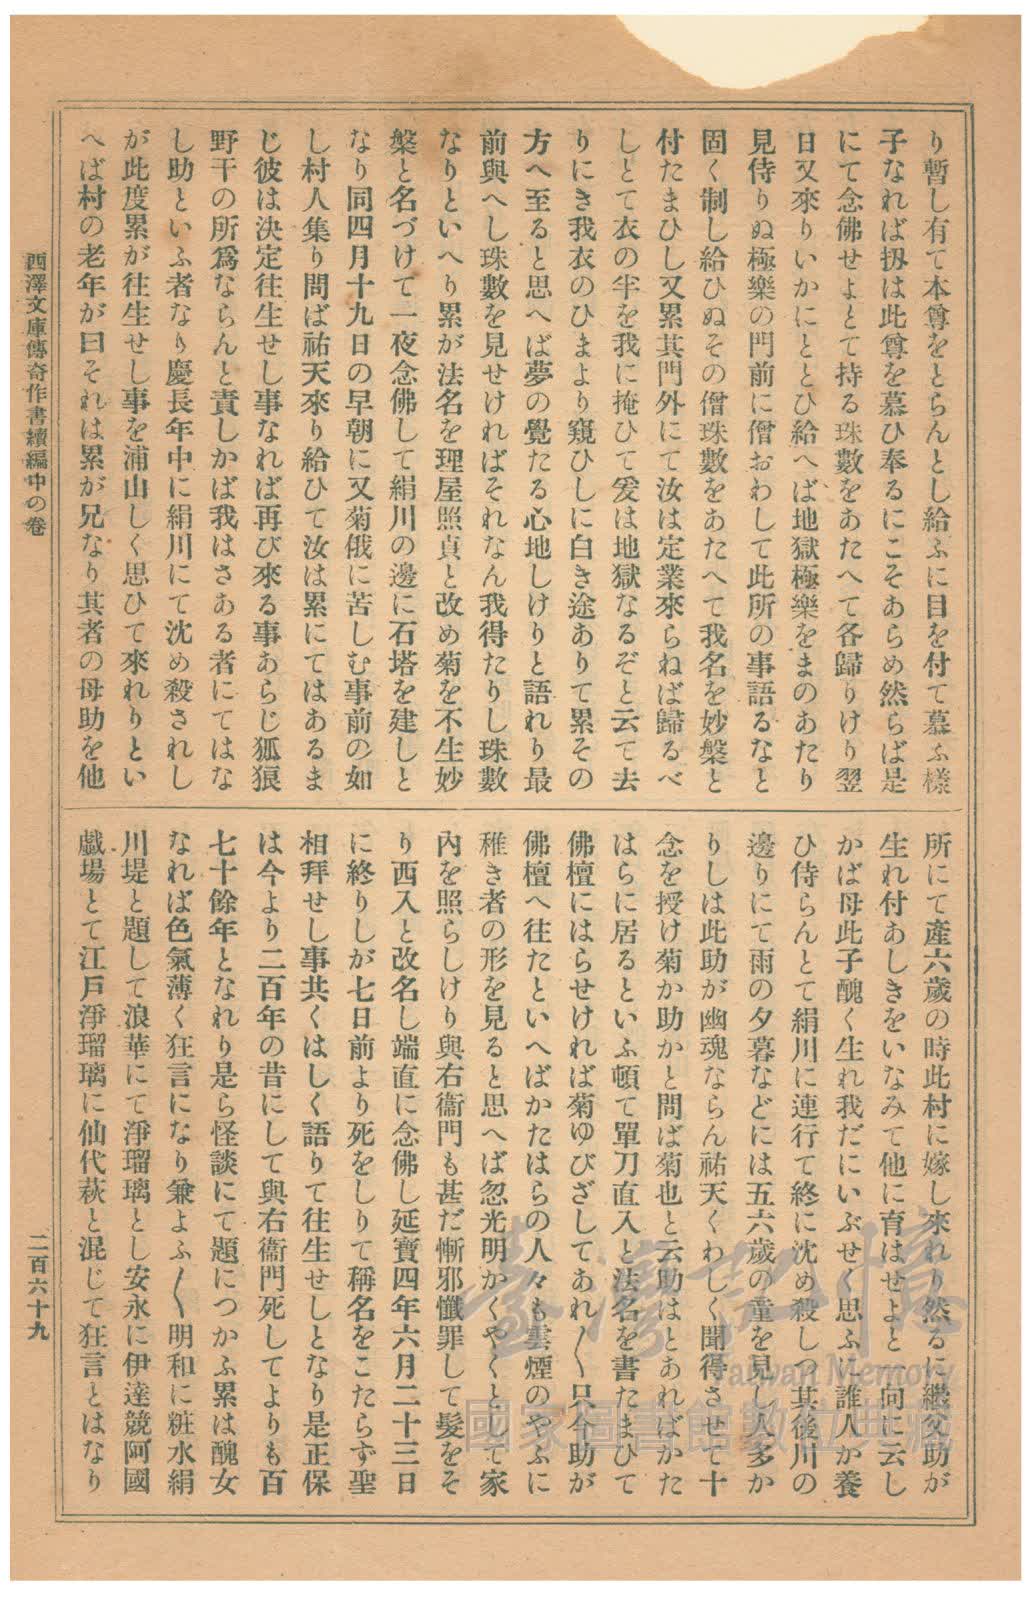 り暫し有て本尊をとらんとし給ふに目を付て慕ふ樣
子なれば扨は此尊を慕ひ奉るにこそあらめ然らば是
にて念佛せよとて持る珠數をあたへて各歸りけり翌
日又來りいかにととひ給へば地獄極樂をまのあたり
見侍りぬ極樂の門前に僧おわして此所の事語るなと
固く制し給ひぬその僧珠數をあたへて我名を妙槃と
付たまひし又累其門外にて汝は定業來らねば歸るべ
しとて衣の半を我に掩ひて爰は地獄なるぞと云て去
りにき我衣のひまより窺ひしに白き途ありて累その
方へ至ると思へば夢の覺たる心地しけりと語れり最
前與へし珠數を見せければそれなん我得たりし珠數
なりといへり累が法名を理屋照貞と改め菊を不生妙
槃と名づけて一夜念佛して絹川の邊に石塔を建しと
なり同四月十九日の早朝に又菊俄に苦しむ事前の如
し村人集り問ば祐天來り給ひて汝は累にてはあるま
じ彼は決定往生せし事なれば再び來る事あらじ狐狼
野干の所爲ならんと責しかば我はさある者にてはな
し助といふ者なり慶長年中に絹川にて沈め殺されし
が此度累が往生せし事を浦山しく思ひて來れりとい
へば村の老年が曰それは累が兄なり其者の母助を他
所にて產六歲の時此村に嫁し來れり然るに繼父助が
生れ付あしきをいなみて他に育はせよと一向に云し
かば母此子醜く生れ我だにいぶせく思ふに誰人か養
ひ侍らんとて絹川に連行て終に沈め殺しつ其後川の
邊りにて雨の夕暮などには五六歲の童を見し人多か
りしは此助が幽魂ならん祐天くわしく聞得させて十
念を授け菊か助かと問ば菊也と云助はとあればかた
はらに居るといふ頓て單刀直入と法名を書たまひて
佛檀にはらせければ菊ゆびざしてあれ〱只今助が
佛檀へ往たといへばかたはらの人々も雲煙のやふに
稚き者の形を見ると思へば忽光明かくやくとして家
內を照らしけり與右衞門も甚だ慚邪懺罪して髮をそ
り西入と改名し端直に念佛し延寶四年六月二十三日
に終りしが七日前より死をしりて稱名をこたらず聖
相拜せし事共くはしく語りて往生せしとなり是正保
は今より二百年の昔にして與右衞門死してよりも百
七十餘年となれり是ら怪談にて題につかふ累は醜女
なれば色氣薄く狂言になり兼よふ〱明和に粧水絹
川堤と題して浪華にて淨瑠璃とし安永に伊達競阿國
戲場とて江戶淨瑠璃に仙代萩と混じて狂言とはなり
西澤文庫傳奇作書續編中の卷
二百六十九
臺灣記憶
Taiwan Memory
國家圖書館數位典藏